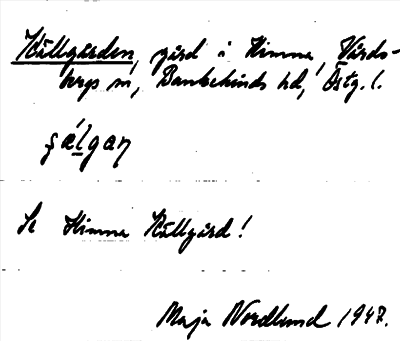 Källgården, gård i Himna, Vårds-
bergs sn, Bankekinds hd, Östg. l.
çȧ́lgaɳ
Se Himna Källgård!
Maja Nordlund 1947.